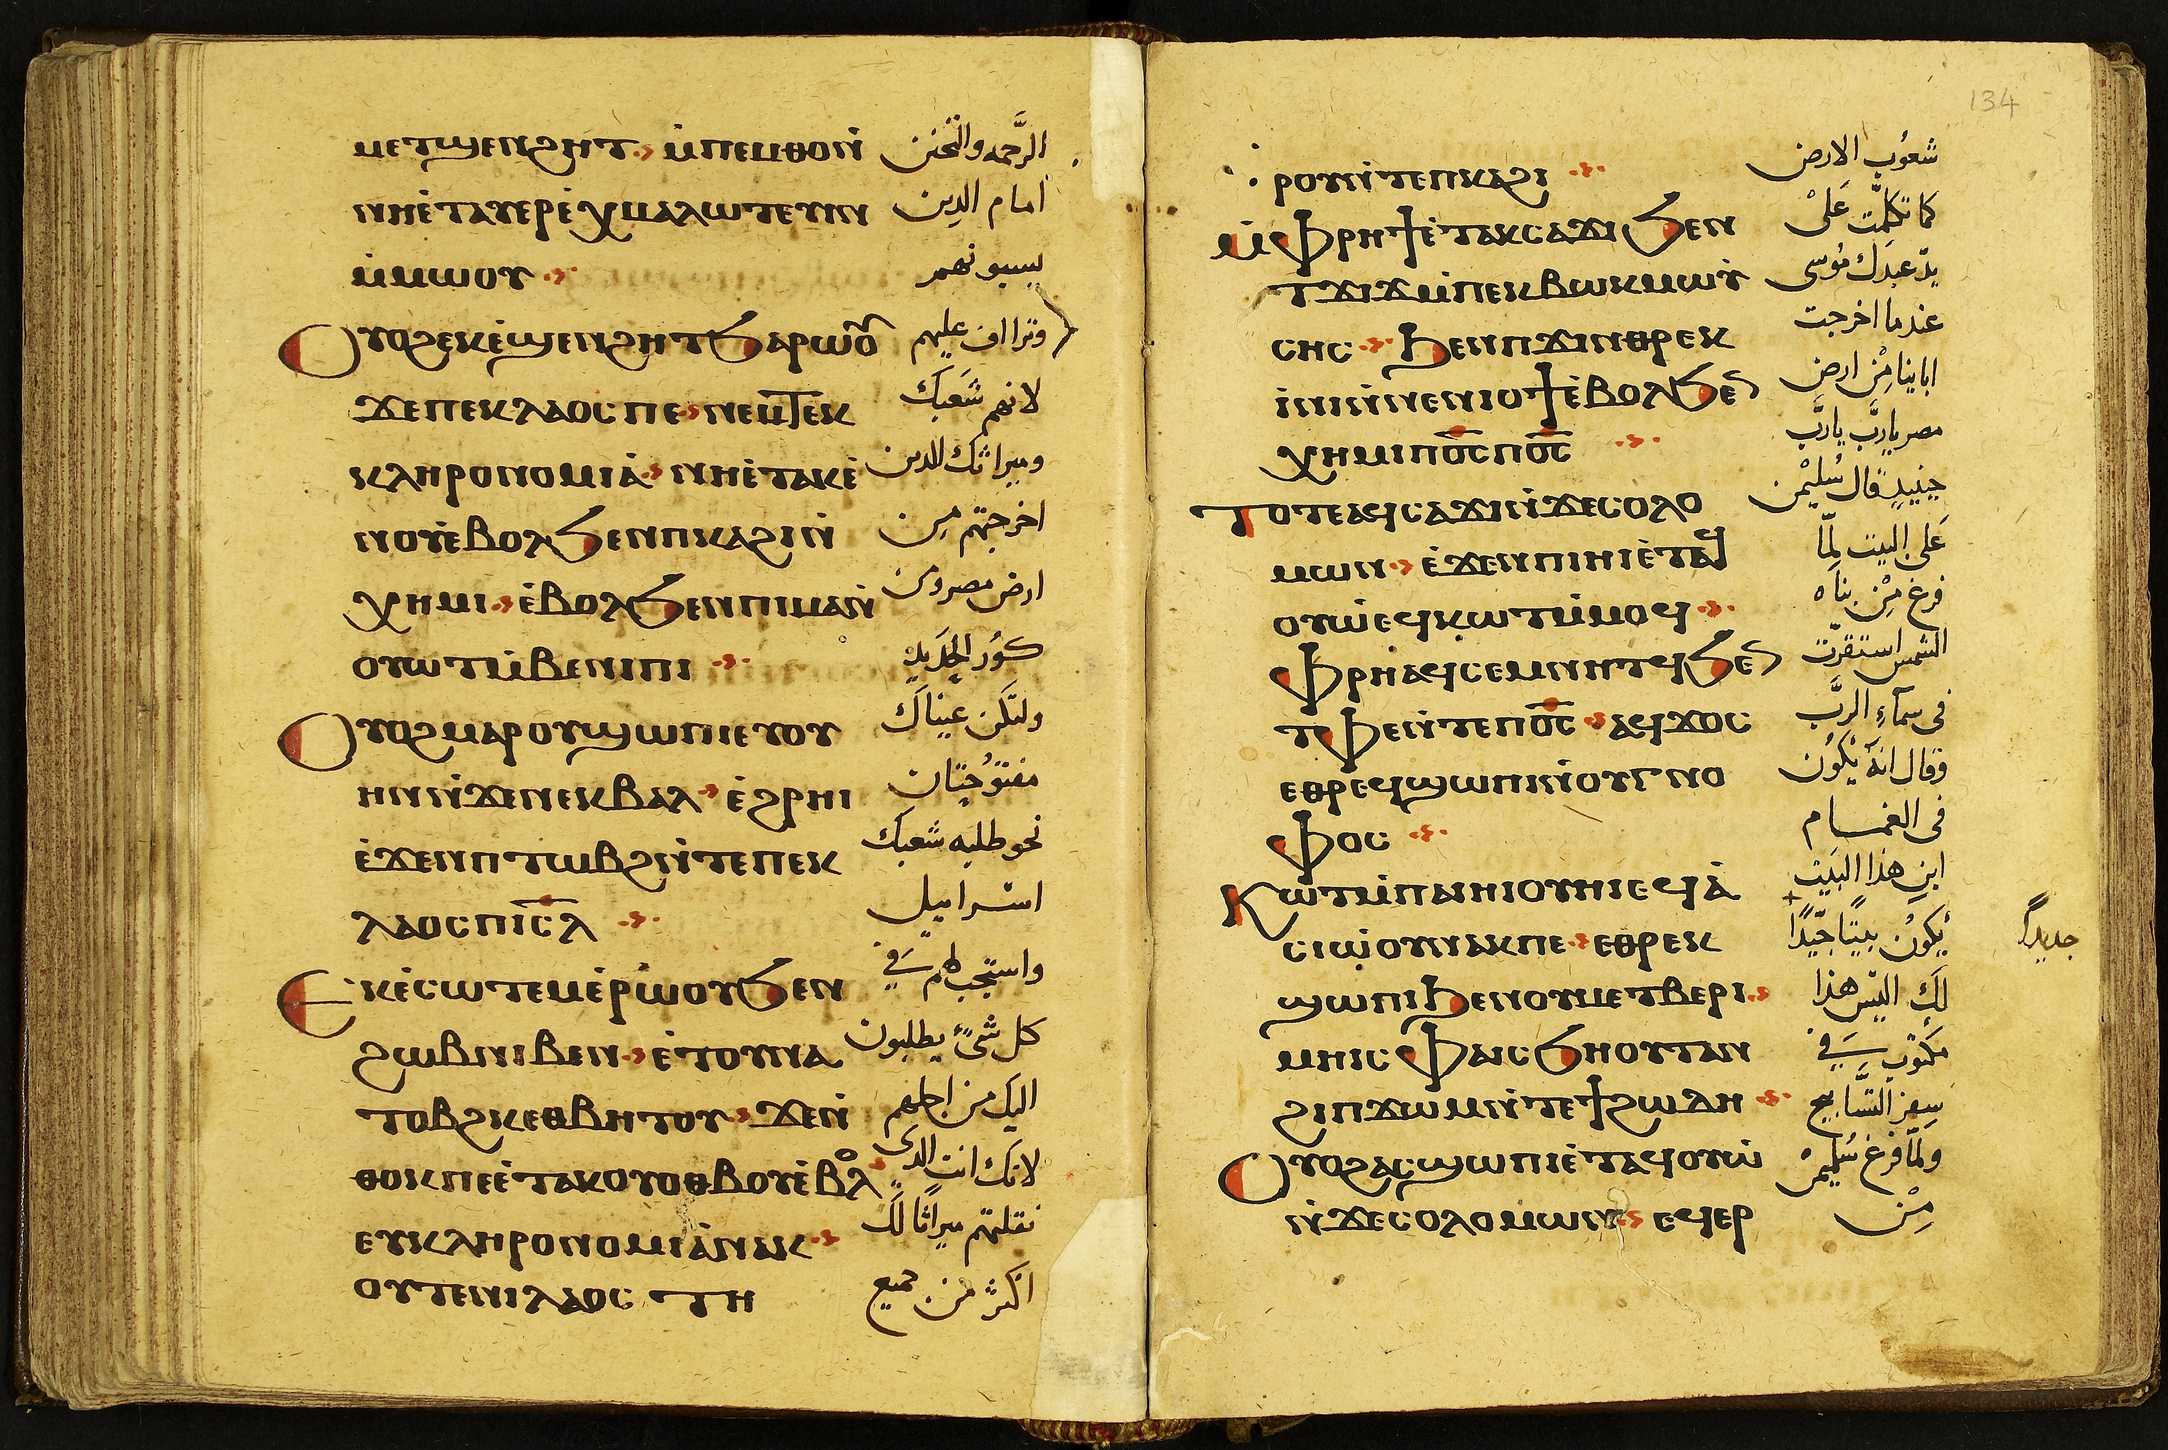 ⲙⲉⲧϣⲉⲛϩⲏⲧ· ⲙ̀ⲡⲉⲙⲑⲟⲛ̀
ⲛⲛⲏⲉ̀ⲧⲁⲩⲉⲣⲉ̀ⲭⲙⲁⲗⲱⲧⲉⲩⲓⲛ
ⲙ̀ⲙⲱⲟⲩ·
Ⲟⲩⲟϩⲉⲕⲉ̀ϣⲉⲛϩⲏⲧϧⲁⲣⲱⲟ̅
ϫⲉⲡⲉⲕⲗⲁⲟⲥⲡⲉ· ⲛⲉⲙⲧⲉⲕ
ⲕⲗⲏⲣⲟⲛⲟⲙⲓⲁ̀· ⲛⲏⲉ̀ⲧⲁⲕⲉ̀
ⲛⲟⲩⲉ̀ⲃⲟⲗϧⲉⲛⲡⲕⲁϩⲓⲛ̀
ⲭⲏⲙⲓ· ⲉ̀ⲃⲟⲗϧⲉⲛⲡⲓⲙⲁⲛ̀
ⲟⲩⲱⲧⲙ̀ⲃⲉⲛⲓⲡⲓ
Ⲟⲩⲟϩⲙⲁⲣⲟⲩϣⲱⲡⲓⲉⲩⲟⲩ
ⲏⲛⲛ̀ϫⲉⲛⲉⲕⲃⲁⲗ· ⲉ̀ϩⲣⲏⲓ
ⲉ̀ϫⲉⲛⲡⲧⲱⲃϩⲛ̀ⲧⲉⲡⲉⲕ
ⲗⲁⲟⲥⲡⲓⲥ̅ⲗ
Ⲉⲕⲉ̀ⲥⲱⲧⲉⲙⲉ̀ⲣⲱ̀ⲟⲩϧⲉⲛ
ϩⲱⲃⲛⲓⲃⲉⲛ· ⲉ̀ⲧⲟⲩⲛⲁ
ⲧⲟⲃϩⲕⲉⲑⲃⲏⲧⲟⲩ· ϫⲉⲛ̀
ⲑⲟⲕⲡⲉⲉ̀ⲧⲁⲕⲟⲩⲟⲑⲃⲟⲩⲉ̀ⲃⲟⲗ
ⲉⲩⲕⲗⲏⲣⲟⲛⲟⲙⲓⲁ̀ⲛⲁⲕ·
ⲟⲩⲧⲉⲛⲓⲗⲁⲟⲥ ⲧⲏ
الرَّحمه والتحنن
امام الدين
يسبونهم
وتراأف عليهم
لانهم شَعبَك
وميراثك الدين
اخرجتهم من
ارض مصر ومن
كوُر الحَديد
ولتكَن عيناكَ
مفتوُحتان
نحو طلبه شعبك
اسراييل
واستجب لهم في
كل شىٍ يطلبون
اليك من اجلهم
لانك انت الدى
نقلتهم ميراثًا لَك
اكثر من جميع
134
ⲣⲟⲩⲛ̀ⲧⲉⲡⲕⲁϩⲓ
ⲙ̀ⲫⲣⲏϯⲉ̀ⲧⲁⲕⲥⲁϫⲓϧⲉⲛ
ⲧϫⲓϫⲙ̀ⲡⲉⲕⲃⲱⲕⲙⲱⲩ̀
ⲥⲏⲥ· ϧⲉⲛⲡϫⲓⲛⲑⲣⲉⲕ
ⲓ̀ⲛⲓⲛ̀ⲛⲉⲛⲓⲟϯⲉ̀ⲃⲟⲗϧⲉ
ⲭⲏⲙⲓⲡⲟ̅ⲥ̅ⲡⲟ̅ⲥ̅
Ⲧⲟⲧⲉⲁϥⲥⲁϫⲓⲛ̀ϫⲉⲥⲟⲗⲟ
ⲙⲱⲛ· ⲉ̀ϫⲉⲛⲡⲓⲏⲓⲉ̀ⲧⲁϥ
ⲟⲩⲱ̀ⲉϥⲕⲱⲧⲙ̀ⲙⲟϥ·
Ⲫⲣⲏⲁϥⲥⲉⲙⲛⲏⲧϥϧⲉ
ⲧⲫⲉⲛ̀ⲧⲉⲡⲟ̅ⲥ̅· ⲁϥϫⲟⲥ
ⲉⲑⲣⲉϥϣⲱⲡⲓⲛ̀ⲟⲩⲅⲛⲟ
ⲫⲟⲥ
Ⲕⲱⲧⲙ̀ⲡⲁⲓⲏⲓⲟⲩⲏⲓⲉϥⲁ̀
ⲥⲓⲱⲟⲩⲛⲁⲕⲡⲉ· ⲉⲑⲣⲉⲕ
ϣⲱⲡⲓϧⲉⲛⲟⲩⲙⲉⲧⲃⲉⲣⲓ·
ⲙⲏⲓⲥⲫⲁⲓⲥϧⲏⲟⲩⲧⲁⲛ
ϩⲓⲡϫⲱⲙⲛ̀ⲧⲉϯϩⲱⲇⲏ
Ⲟⲩⲟϩⲁⲥϣⲱⲡⲓⲉ̀ⲧⲁϥⲟⲩⲱ̀
ⲛ̀ϫⲉⲥⲟⲗⲟⲙⲱⲛ· ⲉϥⲉⲣ
شعوُب الارض
كما تكلمَّت عَلىْ
يدّ عبدك موُسى
عندما اخرجت
اباينا مِنْ ارض
مصر ياربَّ ياربَّ
حينيدٍ قال سُليمْن
عَلى البيت لمّا
فرغ مِنْ بناه
الشمس استقرّت
فى سمآءِ الربَّ
وقال انه يكوُن
فى الغمام
ابنِ هذا البَيت
يَكوُن بيتًا جيّدًا
جديداً
لَكَ اليّس هذا
مكتوُب في
سِفرْ التسَّابيح
ولمّا فرغ سُليمْن
مِنْ